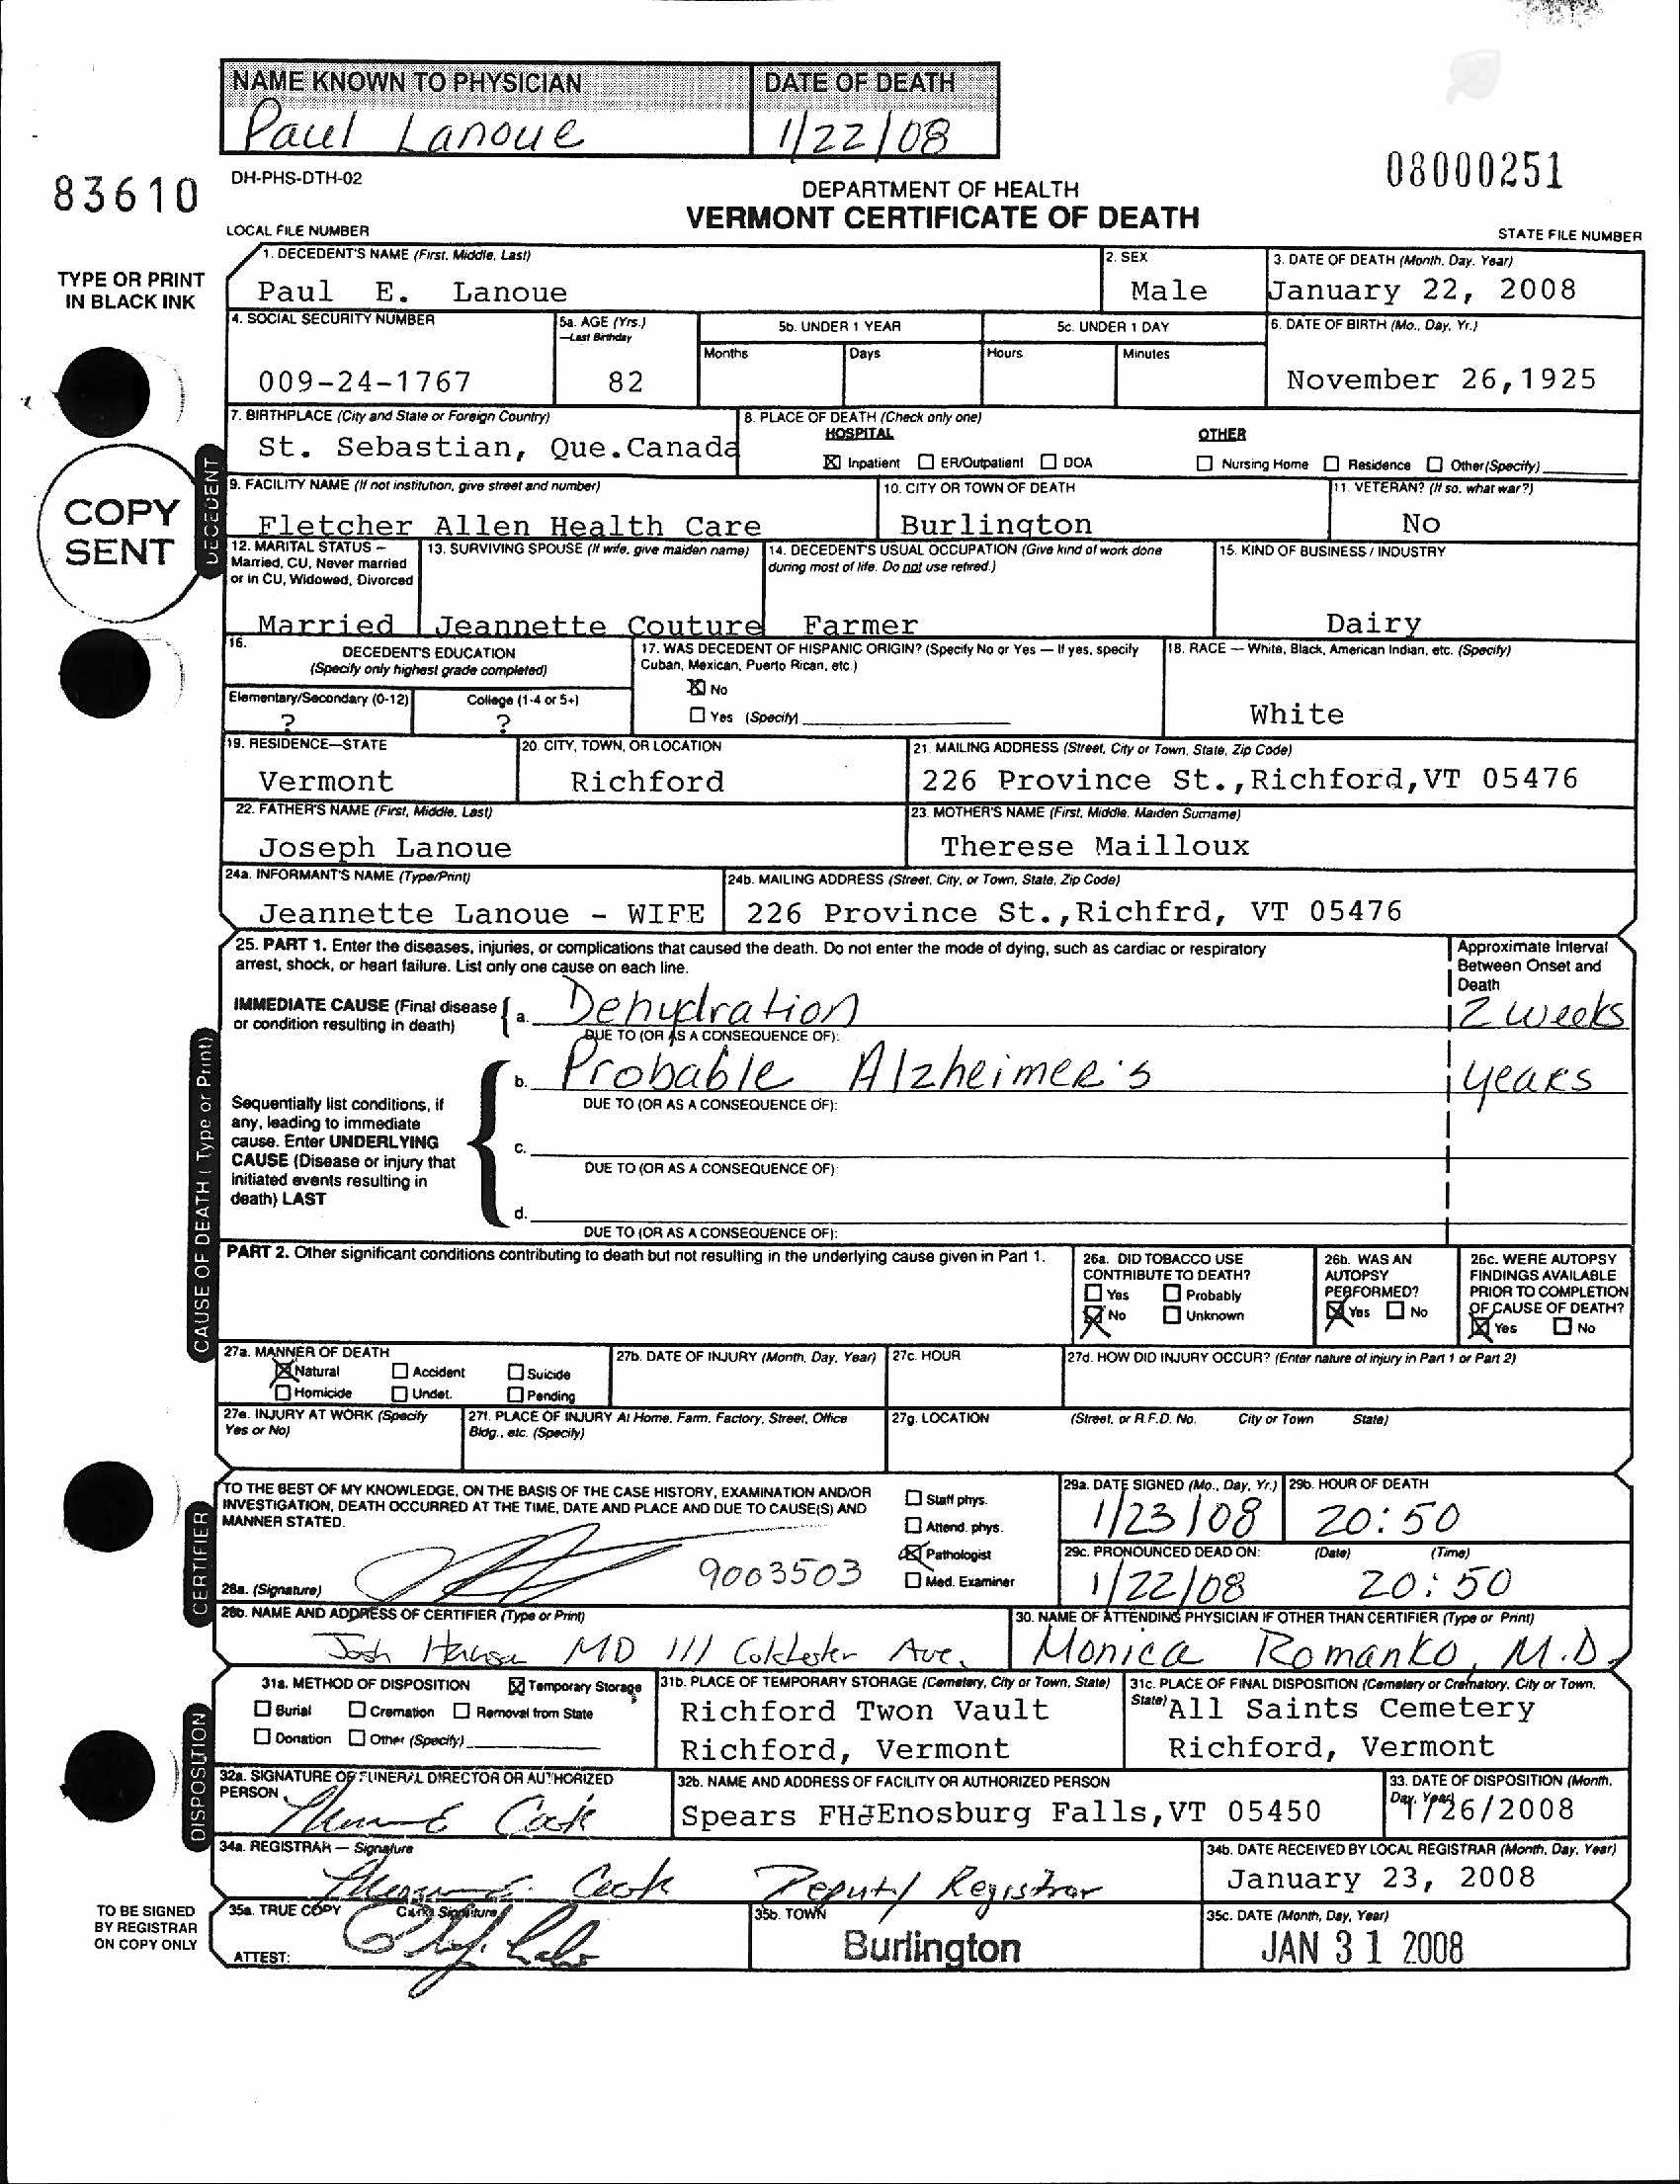 NAME KNOWN TO PHYSICIAN DATE OF DEATH
Paul Lanoue 1/22/08
83610 DH-PHS-DTH-02 08000251
DEPARTMENT OF HEALTH
VERMONT CERTIFICATE OF DEATH
LOCAL FILE NUMBER STATE FILE NUMBER
TYPE OR PRINT IN BLACK INK
1. DECEDENT'S NAME (First, Middle, Last) 2. SEX 3. DATE OF DEATH (Month, Day, Year)
Paul E. Lanoue Male January 22, 2008
4. SOCIAL SECURITY NUMBER 5a. AGE (Yrs.) —Last Birthday 5b. UNDER 1 YEAR 5c. UNDER 1 DAY 6. DATE OF BIRTH (Mo., Day, Yr.)
Months Days Hours Minutes
009-24-1767 82 November 26,1925
7. BIRTHPLACE (City and State or Foreign Country) 8. PLACE OF DEATH (Check only one)
HOSPITAL OTHER
St. Sebastian, Que.Canada
Inpatient ER/Outpatient DOA Nursing Home Residence Other(Specify)
COPY SENT
DECEDENT
9. FACILITY NAME (If not institution, give street and number) 10. CITY OR TOWN OF DEATH 11. VETERAN? (If so, what war?)
Fletcher Allen Health Care Burlington No
12. MARITAL STATUS – Married, CU, Never married or in CU, Widowed, Divorced 13. SURVIVING SPOUSE (If wife, give maiden name) 14. DECEDENT'S USUAL OCCUPATION (Give kind of work done during most of life. Do not use retired.) 15. KIND OF BUSINESS / INDUSTRY
Married Jeannette Couture Farmer Dairy
16. DECEDENT'S EDUCATION (Specify only highest grade completed) 17. WAS DECEDENT OF HISPANIC ORIGIN? (Specify No or Yes — If yes, specify Cuban, Mexican, Puerto Rican, etc.) 18. RACE — White, Black, American Indian, etc. (Specify)
Elementary/Secondary (0-12) College (1-4 or 5+) No
? ? Yes (Specify) White
19. RESIDENCE—STATE 20. CITY, TOWN, OR LOCATION 21. MAILING ADDRESS (Street, City or Town, State, Zip Code)
Vermont Richford 226 Province St.,Richford,VT 05476
22. FATHER'S NAME (First, Middle, Last) 23. MOTHER'S NAME (First, Middle, Maiden Surname)
Joseph Lanoue Therese Mailloux
24a. INFORMANT'S NAME (Type/Print) 24b. MAILING ADDRESS (Street, City, or Town, State, Zip Code)
Jeannette Lanoue - WIFE 226 Province St.,Richfrd, VT 05476
CAUSE OF DEATH ( Type or Print)
25. PART 1. Enter the diseases, injuries, or complications that caused the death. Do not enter the mode of dying, such as cardiac or respiratory
arrest, shock, or heart failure. List only one cause on each line.
Approximate Interval Between Onset and Death
IMMEDIATE CAUSE (Final disease or condition resulting in death) a. Dehydration 2 weeks
DUE TO (OR AS A CONSEQUENCE OF):
b. Probable Alzheimer's years
DUE TO (OR AS A CONSEQUENCE OF):
Sequentially list conditions, if any, leading to immediate cause. Enter UNDERLYING CAUSE (Disease or injury that initiated events resulting in death) LAST
c.
DUE TO (OR AS A CONSEQUENCE OF):
d.
DUE TO (OR AS A CONSEQUENCE OF):
PART 2. Other significant conditions contributing to death but not resulting in the underlying cause given in Part 1.
26a. DID TOBACCO USE CONTRIBUTE TO DEATH? Yes Probably No Unknown
26b. WAS AN AUTOPSY PERFORMED? Yes No
26c. WERE AUTOPSY FINDINGS AVAILABLE PRIOR TO COMPLETION OF CAUSE OF DEATH? Yes No
27a. MANNER OF DEATH 27b. DATE OF INJURY (Month, Day, Year) 27c. HOUR 27d. HOW DID INJURY OCCUR? (Enter nature of injury in Part 1 or Part 2)
Natural Accident Suicide
Homicide Undet. Pending
27e. INJURY AT WORK (Specify Yes or No) 27f. PLACE OF INJURY At Home, Farm, Factory, Street, Office Bldg., etc. (Specify) 27g. LOCATION (Street, or R.F.D. No. City or Town State)
CERTIFIER
TO THE BEST OF MY KNOWLEDGE, ON THE BASIS OF THE CASE HISTORY, EXAMINATION AND/OR
INVESTIGATION, DEATH OCCURRED AT THE TIME, DATE AND PLACE AND DUE TO CAUSE(S) AND
MANNER STATED.
Staff phys.
Attend. phys.
Pathologist
Med. Examiner
29a. DATE SIGNED (Mo., Day, Yr.) 29b. HOUR OF DEATH
1/23/08 20:50
29c. PRONOUNCED DEAD ON: (Date) (Time)
28a. (Signature) 9003503 1/22/08 20:50
28b. NAME AND ADDRESS OF CERTIFIER (Type or Print) 30. NAME OF ATTENDING PHYSICIAN IF OTHER THAN CERTIFIER (Type or Print)
Josh MD 111 Colchester Ave. Monica Romanko, M.D.
DISPOSITION
31a. METHOD OF DISPOSITION Temporary Storage 31b. PLACE OF TEMPORARY STORAGE (Cemetery, City or Town, State) 31c. PLACE OF FINAL DISPOSITION (Cemetery or Crematory, City or Town, State)
Burial Cremation Removal from State Richford Twon Vault All Saints Cemetery
Donation Other (Specify) Richford, Vermont Richford, Vermont
32a. SIGNATURE OF FUNERAL DIRECTOR OR AUTHORIZED PERSON 32b. NAME AND ADDRESS OF FACILITY OR AUTHORIZED PERSON 33. DATE OF DISPOSITION (Month, Day, Year)
Cook Spears FH Enosburg Falls,VT 05450 1/26/2008
34a. REGISTRAR — Signature 34b. DATE RECEIVED BY LOCAL REGISTRAR (Month, Day, Year)
Cook Deputy Registrar January 23, 2008
TO BE SIGNED BY REGISTRAR ON COPY ONLY
35a. TRUE COPY Clerk Signature 35b. TOWN 35c. DATE (Month, Day, Year)
ATTEST: Burlington JAN 31 2008